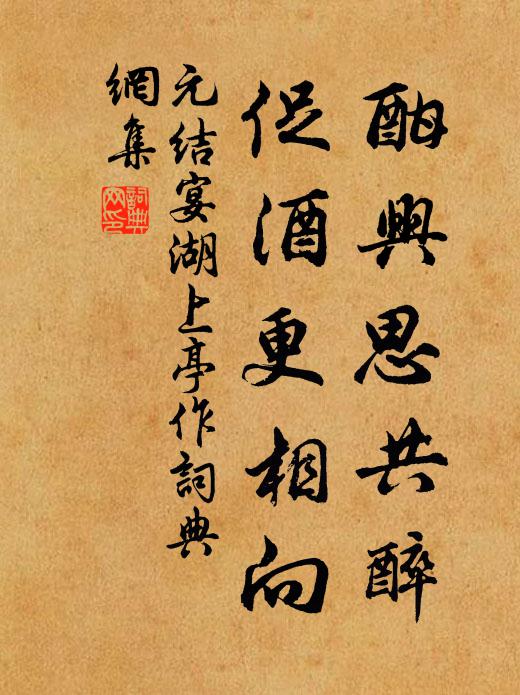 酣興思共醉
促酒更相向
元结宴湖上亭作詞典
網集
詞典
网印